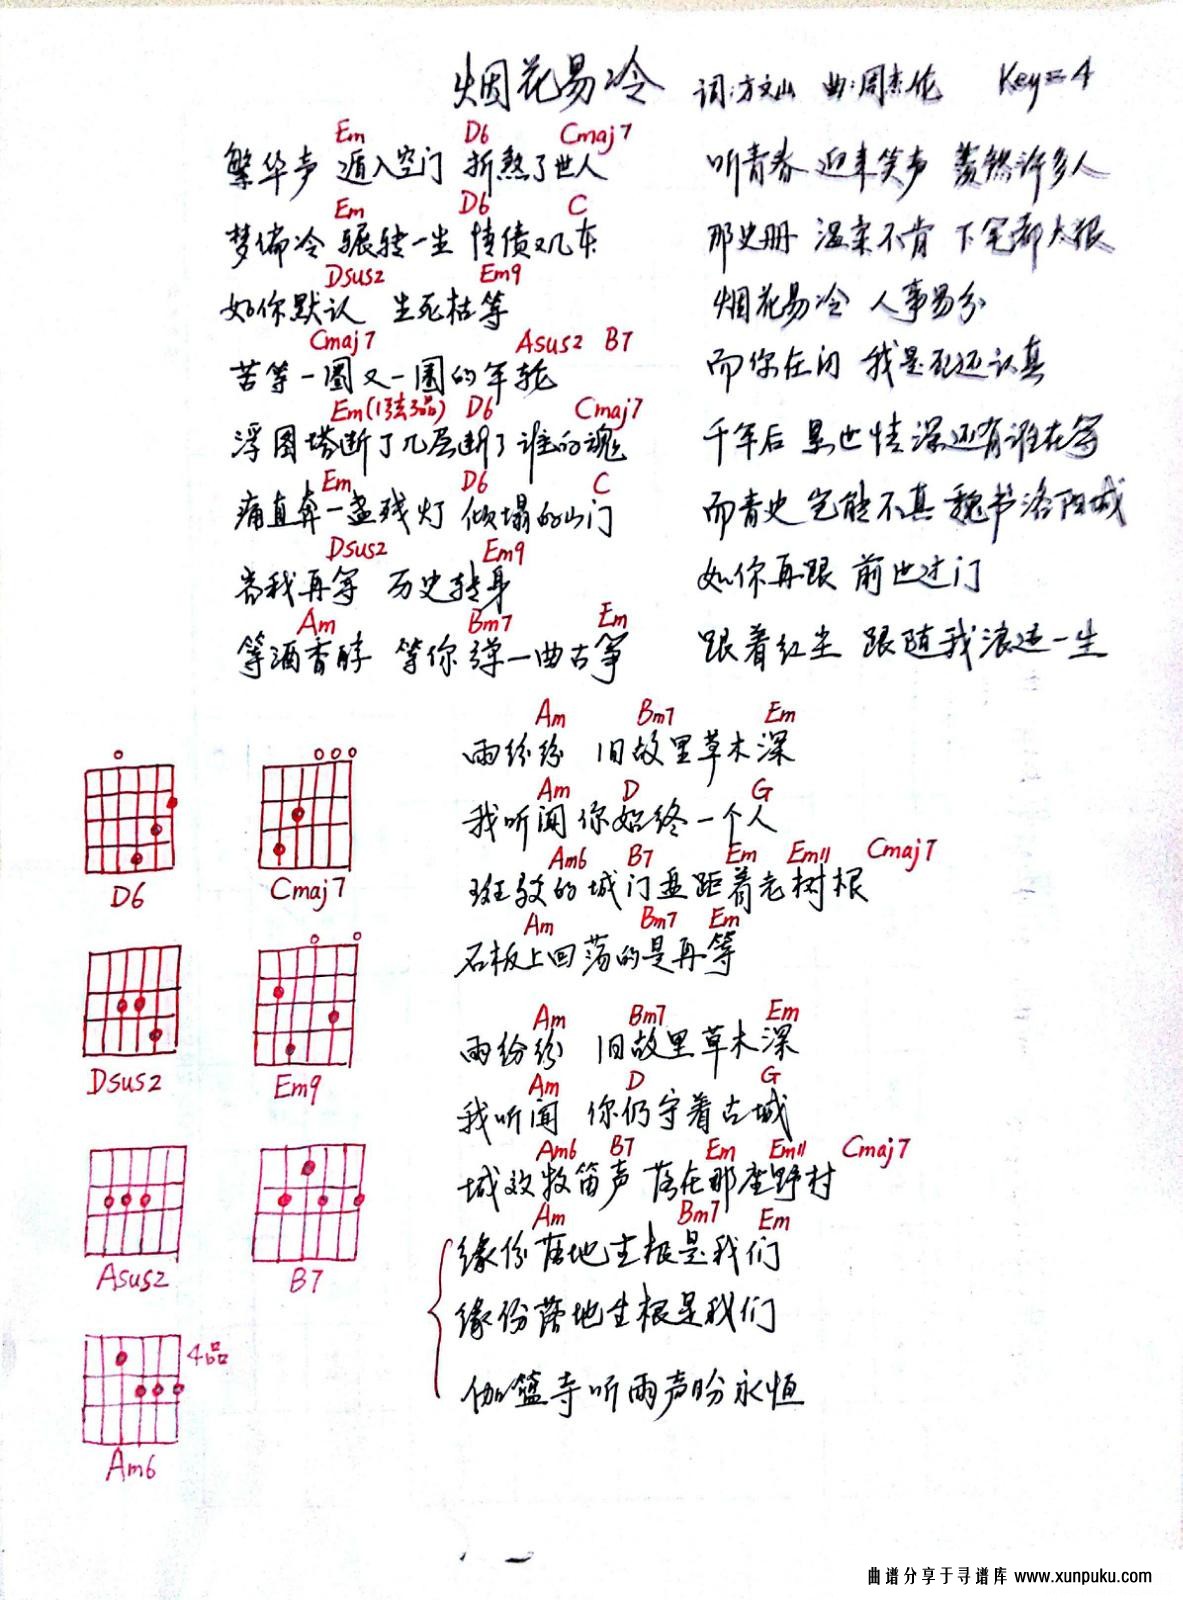 烟花易冷 词:方文山 曲:周杰伦 Key=4
Em D6 Cmaj7
繁华声 遁入空门 折煞了世人
Em D6 C
梦偏冷 辗转一生 情债又几本
Dsus2 Em9
如你默认 生死枯等
Cmaj7 Asus2 B7
苦等一圈又一圈的年轮
Em(1弦3品) D6 Cmaj7
浮图塔断了几层断了谁的魂
Em D6 C
痛直奔一盏残灯 倾塌的山门
Dsus2 Em9
容我再等 历史转身
Am Bm7 Em
等酒香醇 等你弹一曲古筝
听青春 迎来笑声 羡煞许多人
那史册 温柔不肯 下笔都太狠
烟花易冷 人事易分
而你在问 我是否还认真
千年后 累世情深还有谁在等
而青史 岂能不真 魏书洛阳城
如你再跟 前世过门
跟着红尘 跟随我浪迹一生
Am Bm7 Em
雨纷纷 旧故里草木深
Am D G
我听闻你始终一个人
Am6 B7 Em Em11 Cmaj7
斑驳的城门盘踞着老树根
Am Bm7 Em
石板上回荡的是再等
Am Bm7 Em
雨纷纷 旧故里草木深
Am D G
我听闻 你仍守着古城
Am6 B7 Em Em11 Cmaj7
城郊牧笛声 落在那座野村
Am Bm7 Em
缘份落地生根是我们
缘份落地生根是我们
伽蓝寺听雨声盼永恒
D6
Cmaj7
Dsus2
Em9
Asus2
B7
4品
Am6
曲谱分享于寻谱库 www.xunpuku.com